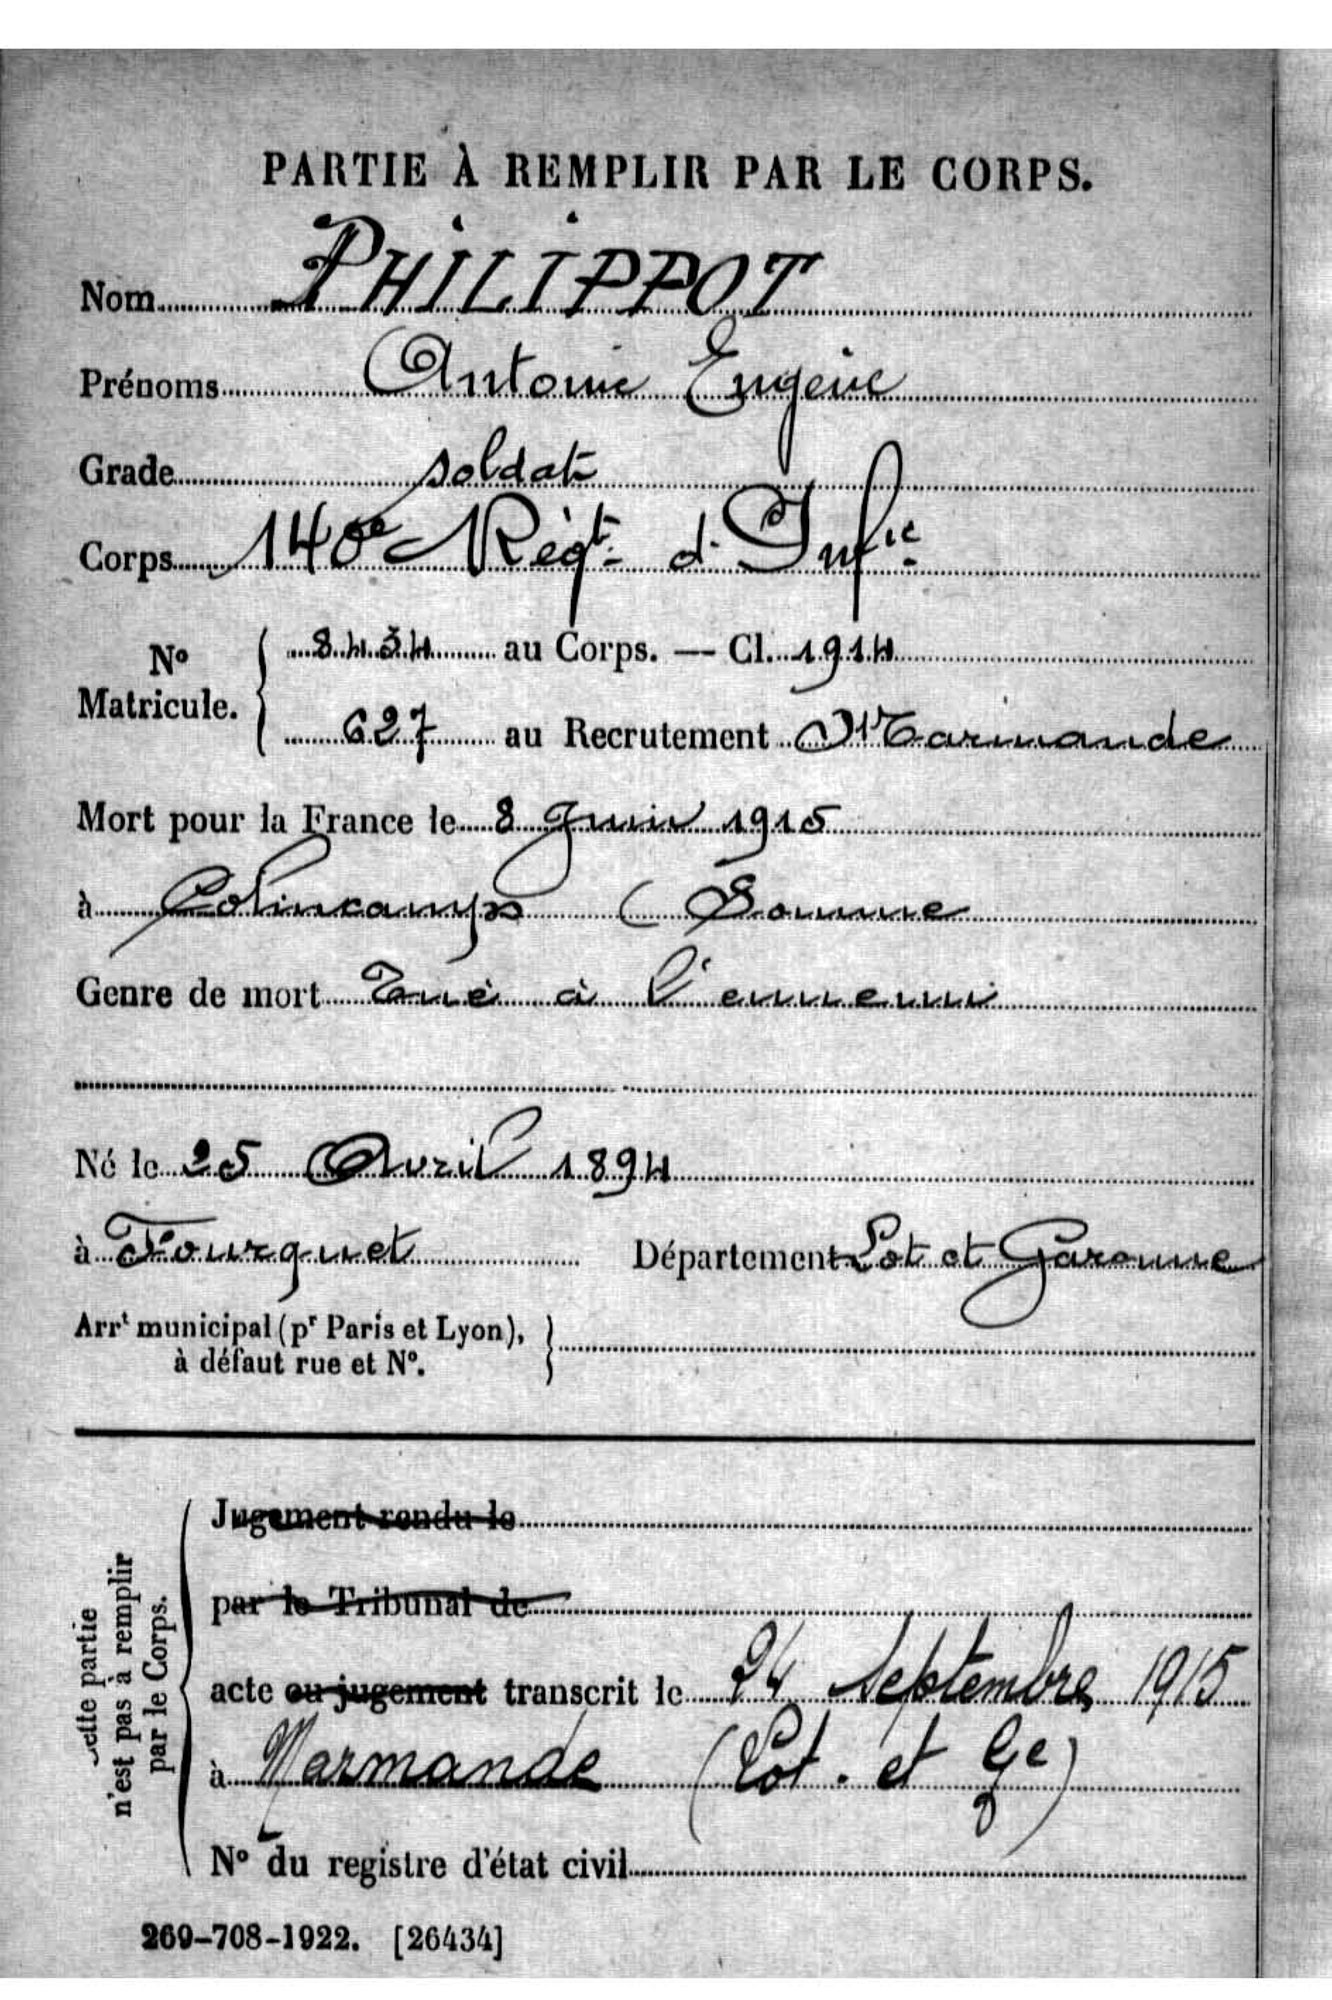 PARTIE À REMPLIR PAR LE CORPS.
Nom PHILIPPOT
Prénoms Antoine Eugène
Grade soldat
Corps 140e Régt d'Infie
No Matricule. 8434 au Corps. — Cl. 1914
627 au Recrutement Marmande
Mort pour la France le 8 Juin 1915
à Colincamps (Somme
Genre de mort Tué à l'ennemi
Né le 25 Avril 1894
à Fourquet Département Lot et Garonne
Arrt municipal (pr Paris et Lyon),
à défaut rue et No.
Cette partie
n'est pas à remplir
par le Corps.
Jugement rendu le
par le Tribunal de
acte ou jugement transcrit le 24 Septembre 1915
à Marmande (Lot. et Ge)
No du registre d'état civil
269-708-1922. [26434]